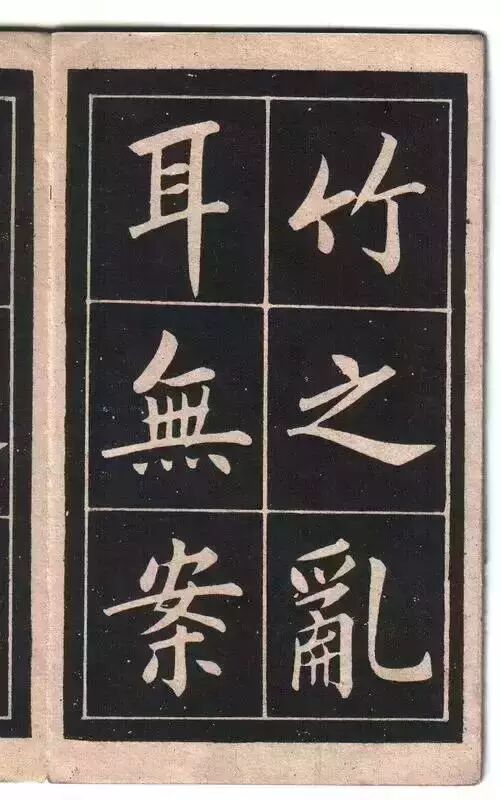 竹之亂
耳無案